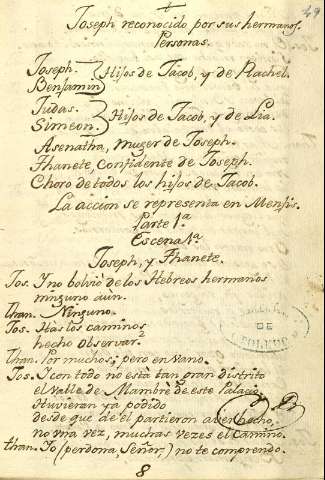 49
Joseph reconocido por sus hermanos.
Personas.
Joseph. } Hijos de Jacob, y de Rachel.
Benjamin
Judas. } Hijos de Jacob, y de Lia.
Simeon.
Asenatha, muger de Joseph.
Thanete, Confidente de Joseph.
Choro de todos los hijos de Jacob.
La accion se representa en Menfis.
Parte 1ª
Escena 1ª
Joseph, y Thanete.
Jos. Y no bolviò de los Hebreos hermanos
ninguno aun.
than. Ninguno.
Jos. Has los caminos
hecho observar?
than. Por muchos; pero en vano.
Jos. Y con todo no està tan gran distrito
el valle de Mambrè de este Palacio.
Huvieran ya podido
desde que de el partieron aver hecho,
no una vez, muchas vezes el camino.
than. Yo (perdona, Señor,) no te comprendo.
DE
TOLEDO
8